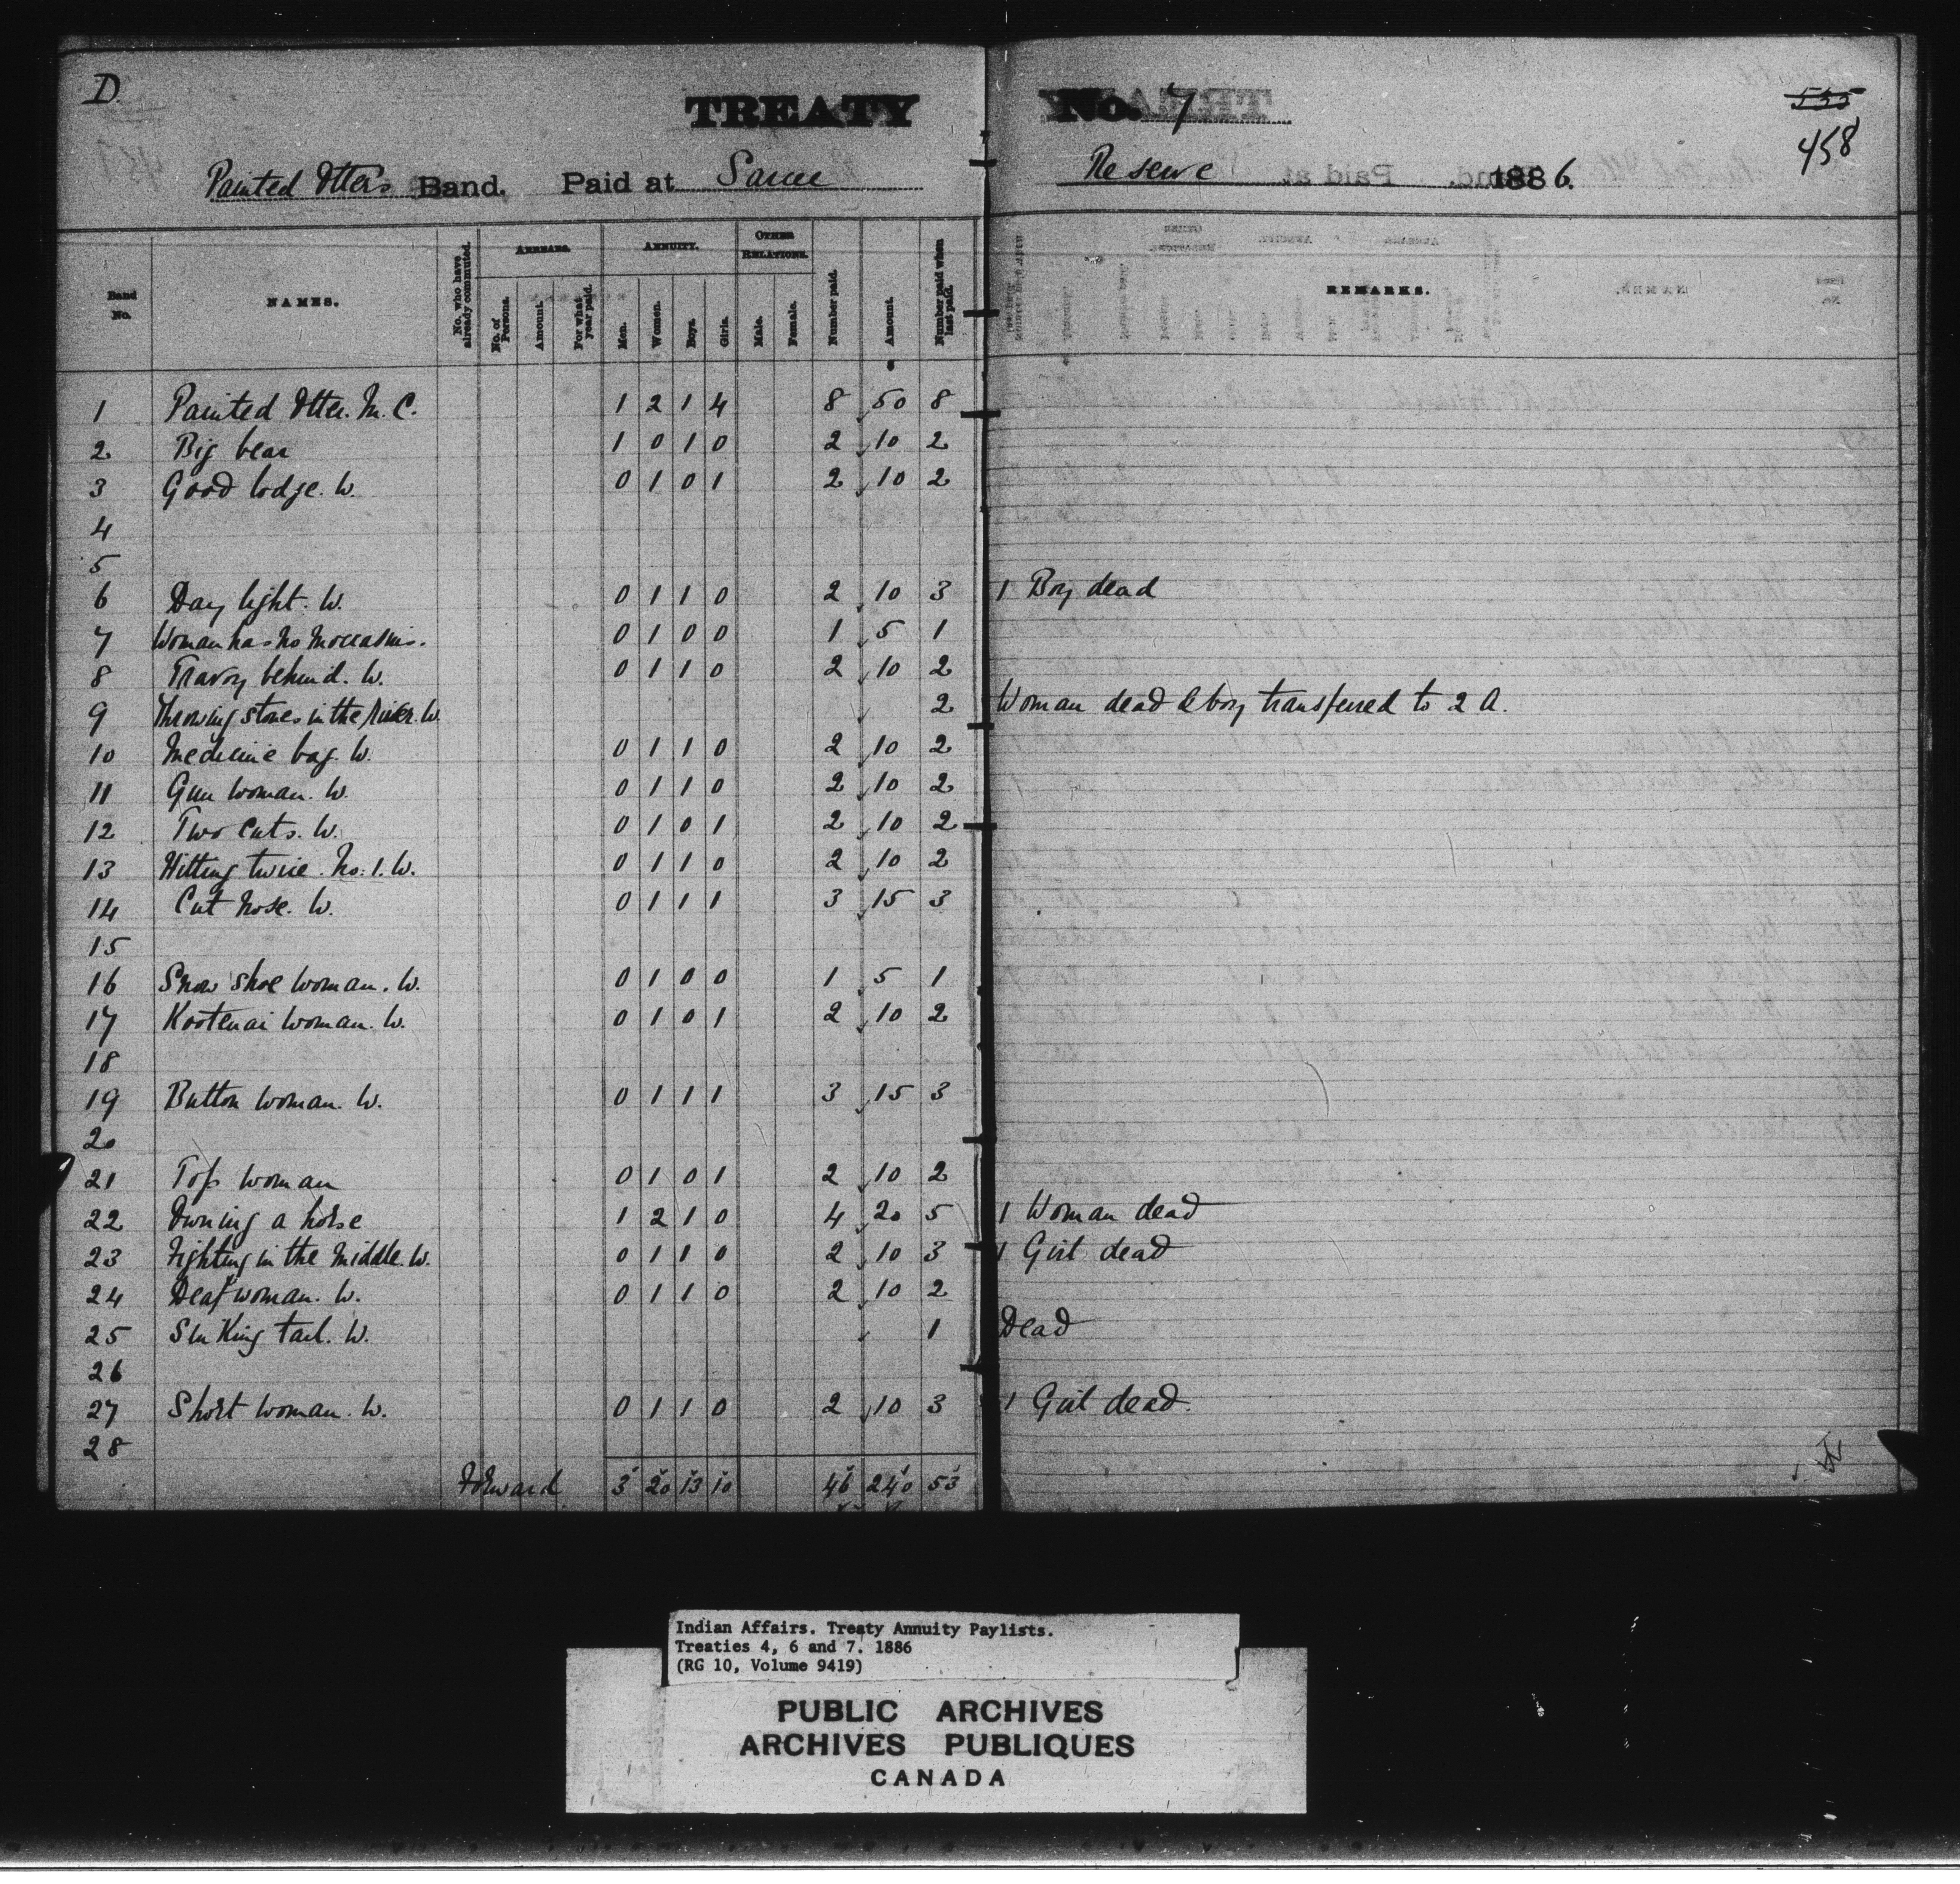 D.
TREATY No. 7
555
458
Painted Otters Band. Paid at Sarcee Reserve 1886.
Band No. NAMES. No. who have already commuted. ARREARS. No. of Persons. Amount. For what year paid. ANNUITY. Men. Women. Boys. Girls. OTHER RELATIONS. Male. Female. Number paid. Amount. Number paid when last paid. REMARKS.
1 Painted Otter. M. C. 1 2 1 4 8 50 8
2 Big bear 1 0 1 0 2 10 2
3 Good lodge. W. 0 1 0 1 2 10 2
4
5
6 Day light. W. 0 1 1 0 2 10 3 1 Boy dead
7 Woman has no moccasins. 0 1 0 0 1 5 1
8 Travoy behind. W. 0 1 1 0 2 10 2
9 Throwing stones in the river. W. 2 Woman dead & boy transferred to 2 A.
10 Medicine bag. W. 0 1 1 0 2 10 2
11 Gun woman. W. 0 1 1 0 2 10 2
12 Two Cuts. W. 0 1 0 1 2 10 2
13 Hitting twice. No. 1. W. 0 1 1 0 2 10 2
14 Cut nose. W. 0 1 1 1 3 15 3
15
16 Snow shoe woman. W. 0 1 0 0 1 5 1
17 Kootenai woman. W. 0 1 0 1 2 10 2
18
19 Button woman. W. 0 1 1 1 3 15 3
20
21 Top woman 0 1 0 1 2 10 2
22 Owning a horse 1 2 1 0 4 20 5 1 Woman dead
23 Fighting in the middle. W. 0 1 1 0 2 10 3 1 Girl dead
24 Deaf woman. W. 0 1 1 0 2 10 2
25 tail. W. 1 Dead
26
27 Short woman. W. 0 1 1 0 2 10 3 1 Girl dead.
28
Forward 3 20 13 10 46 240 53
Indian Affairs. Treaty Annuity Paylists.
Treaties 4, 6 and 7. 1886
(RG 10, Volume 9419)
PUBLIC ARCHIVES
ARCHIVES PUBLIQUES
CANADA